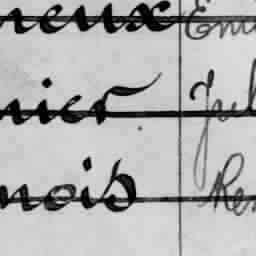 reux Emi
nier Jul
nois Ren